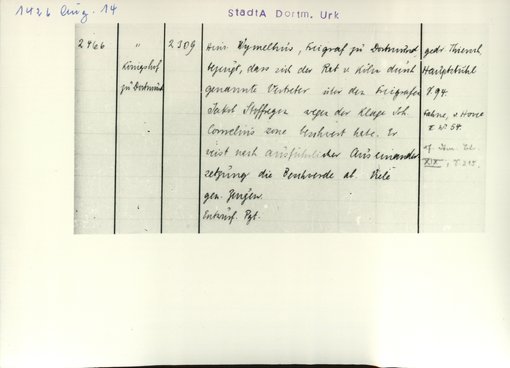 1426 Aug. 14
StadtA Dortm. Urk
2466
"
Königshof
zu Dortmund
2309
Heinr. Wymelhus, Freigraf zu Dortmund
bezeugt, dass sich der Rat v. Köln durch
genannte Vertreter über den Freigrafen
Jakob Stoffregen wegen der Klage Joh.
Cornelius sone beschwert habe. Er
weist nach ausführlicher Auseinander
setzung die Beschwerde ab. Viele
gen. Zeugen.
Entwurf. Pgt.
gedr. Thiersch
Hauptstuhl
S. 94.
Fahne, v. Hövel
II N° 54.
XIX, S. 215.